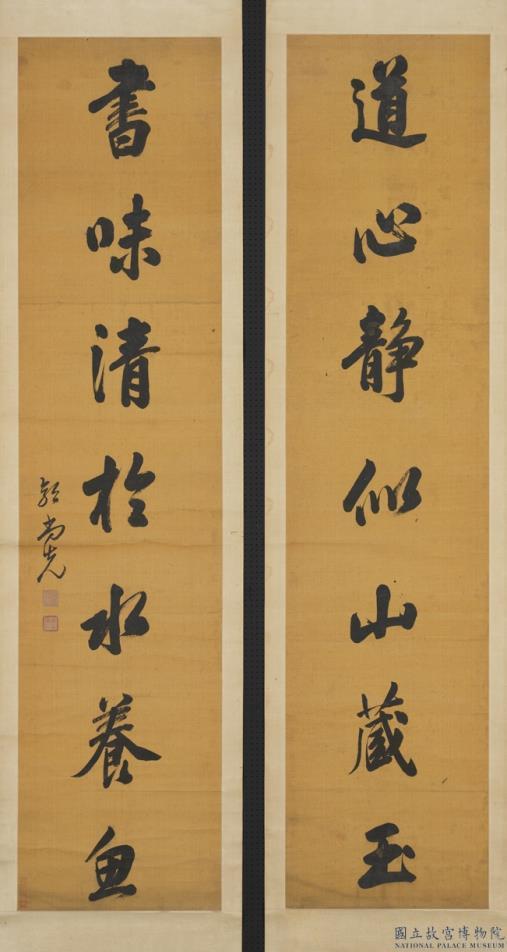 道心静似山藏玉
書味清於水養魚
郭尚先
國立故宮博物院
NATIONAL PALACE MUSEUM